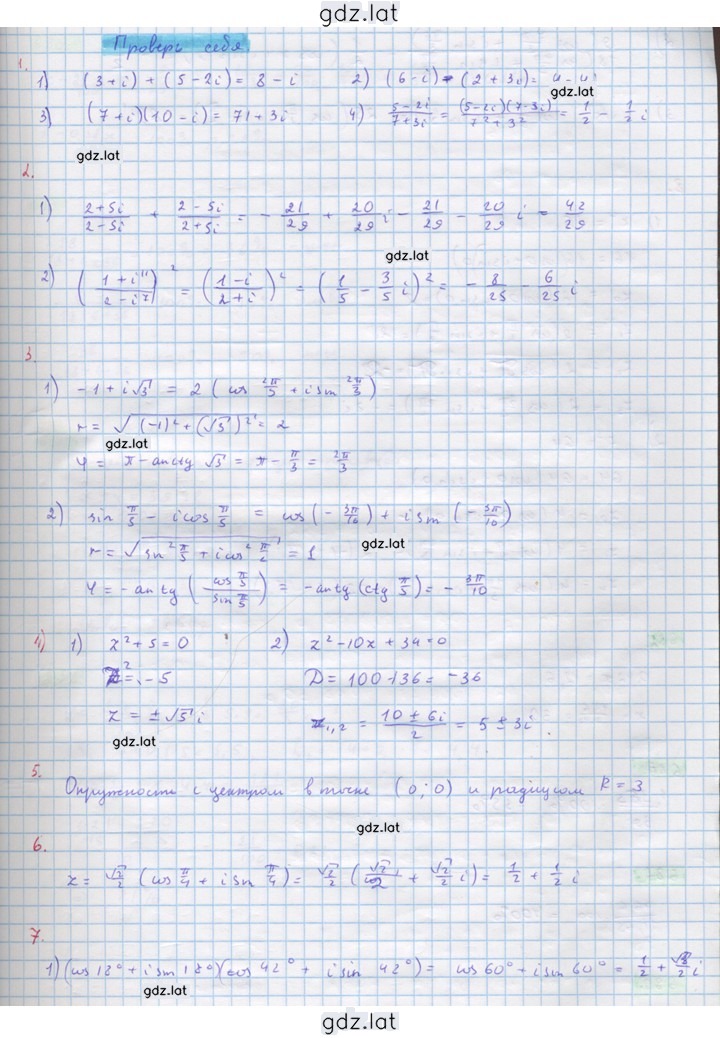 gdz.lat
Проверь себя
1.
1) (3+i) + (5-2i) = 8 - i 2) (6-i) - (2+3i) = 4-4i
gdz.lat
3) (7+i)(10-i) = 71+3i 4) (5-2i)/(7+3i) = (5-2i)(7-3i)/(7²+3²) = 1/2 - 1/2 i
gdz.lat
2.
1) (2+5i)/(2-5i) + (2-5i)/(2+5i) = - 21/29 + 20/29 i - 21/29 - 20/29 i = 42/29
gdz.lat
2) ((1+i¹¹)/(2-i⁷))² = ((1-i)/(2+i))² = (1/5 - 3/5 i)² = - 8/25 - 6/25 i
3.
1) -1+i√3 = 2 (cos 2π/3 + i sin 2π/3)
r = √((-1)²+(√3)²) = 2
gdz.lat
φ = π - arctg √3 = π - π/3 = 2π/3
2) sin π/5 - i cos π/5 = cos(- 3π/10) + i sin (- 3π/10)
gdz.lat
r = √(sin² π/5 + i cos² π/2) = 1
φ = - arctg (cos π/5 / sin π/5) = - arctg (ctg π/5) = - 3π/10
4) 1) z²+5=0 2) z²-10z+34=0
z² = -5 D = 100-136 = -36
z = ±√5 i z₁,₂ = (10 ± 6i)/2 = 5 ± 3i
gdz.lat
5.
Окружность с центром в точке (0;0) и радиусом R = 3
gdz.lat
6.
z = √2/2 (cos π/4 + i sin π/4) = √2/2 (√2/2 + √2/2 i) = 1/2 + 1/2 i
7.
1) (cos 18° + i sin 18°)(cos 42° + i sin 42°) = cos 60° + i sin 60° = 1/2 + √3/2 i
gdz.lat
gdz.lat